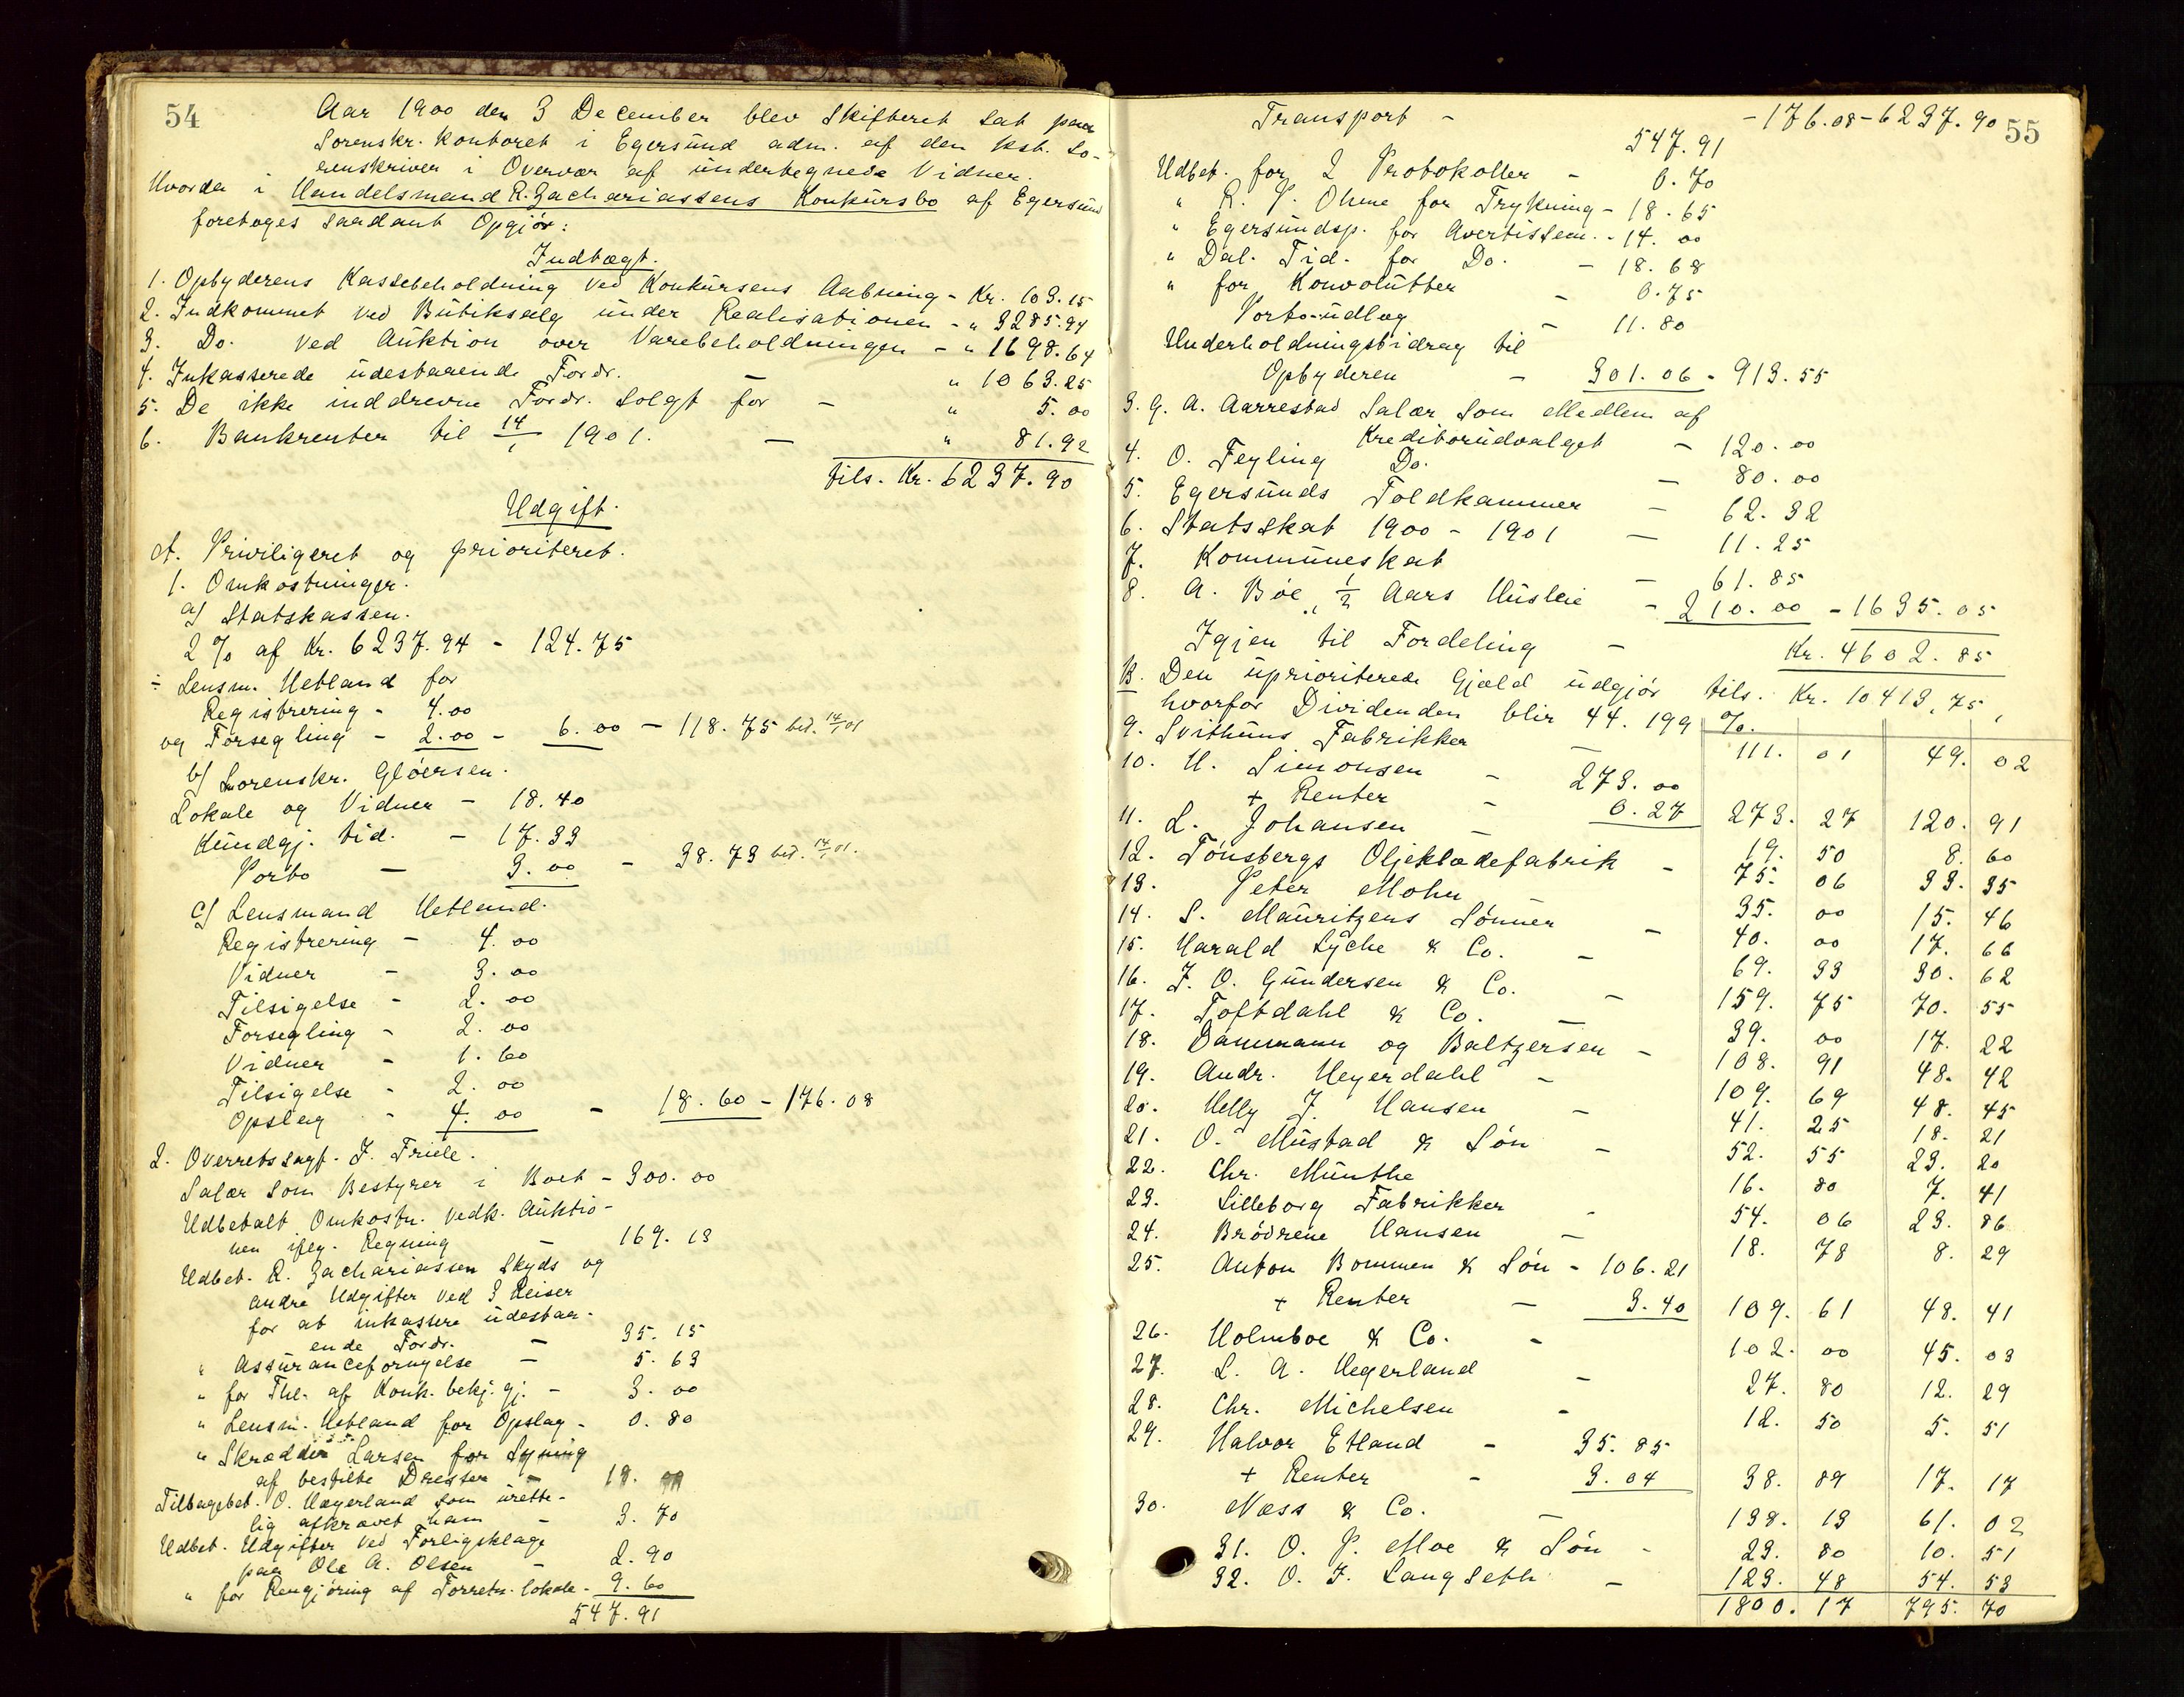 54
Aar 1900 den 3 December blev Skifteret sat paa
Sorenskr. Kontoret i Egersund adm. af den kst. So-
renskriver i Overvær af undertegnede Vidner.
Hvorda i Handelsmand R. Zachariassens Konkursbo af Egersund
foretoges saadant Opgjør:
Indtægt.
1. Opbyderens Kassebeholdning ved Konkursens Aabning - Kr. 103.15
2. Indkommet ved Butiksalg under Realisationen - " 3285.94
3. Do. ved Auktion over Varebeholdningen - " 1698.64
4. Inkasserede udestaaende Fordr. - " 1063.25
5. De ikke inddrevne Fordr. solgt for - " 5.00
6. Bankrenter til 14/1 1901. - " 81.92
tils. Kr. 6237.90
Udgift.
A. Priviligeret og prioriteret.
1. Omkostninger.
a) Statskassen.
2 % af Kr. 6237.94 - 124.75
÷ Lensm. Hetland for
Registrering - 4.00
og Forsegling - 2.00 - 6.00 - 118.75 bet. 14/1 01
b) Sorenskr. Gløersen.
Lokale og Vidner - 18.40
Kundgj. tid. - 17.33
Porto - 3.00 - 38.73 bet. 14/1 01.
c) Lensmand Hetland.
Registrering - 4.00
Vidner - 3.00
Tilsigelse - 2.00
Forsegling - 2.00
Vidner - 1.60
Tilsigelse - 2.00
Opslag - 4.00 - 18.60 - 176.08
2. Overretssagf. J. Friele.
Salær som Bestyrer i Boet - 300.00
Udbetalt Omkostn. vedk. Auktio-
nen ifølg. Regning - 169.13
Udbet. R. Zachariassen Skyds og
andre Udgifter ved 3 Reiser
for at inkassere udestaa-
ende Fordr. - 35.15
" Assurancefornyelse - 5.63
" for Thl. af Konk. bekj. gj. - 3.00
" Lensm. Hetland for Opslag - 0.80
" Skrædder Larsen for Syning
af bestilte Dresser - 18.00
Tilbagebet. O. Hægerland som urette-
lig afkrævet ham - 3.70
Udbet. Udgifter ved Forligsklage
paa Ole A. Olsen - 2.90
" for Rengjøring af Forretn. lokale - 9.60
547.91
55
Transport - - 176.08 - 6237.90
547.91
Udbet. for 2 Protokoller - 0.70
" R. P. Ohme for Trykning - 18.65
" Egersundsp. for Avertissem. - 14.00
" Dal. Tid. for Do. - 18.68
" for Konvolutter - 0.75
Porto-udlæg - 11.80
Underholdningsbidrag til
Opbyderen - 301.06 - 913.55
3. G. A. Aarrestad Salær som Medlem af
Kreditorudvalget - 120.00
4. O. Feyling Do. - 80.00
5. Egersunds Toldkammer - 62.32
6. Statsskat 1900 - 1901 - 11.25
7. Kommuneskat - 61.85
8. A. Bøe, 1/2 Aars Husleie - 210.00 - 1635.05
Igjen til Fordeling - Kr. 4602.85
B. Den uprioriterede Gjæld udgjør tils. Kr. 10413,75,
hvorfor Dividenden blir 44.199 %.
9. Svithuns Fabrikker - 111. 01 49. 02
10. H. Simonsen - 273.00
+ Renter - 0.27 273. 27 120. 91
11. L. Johansen - 19. 50 8. 60
12. Tønsbergs Oljeklædefabrik - 75. 06 33. 35
13. Peter Mohn 35. 00 15. 46
14. S. Mauritzens Sønner - 40. 00 17. 66
15. Harald Lyche & Co. - 69. 33 30. 62
16. J. O. Gundersen & Co. - 159. 75 70. 55
17. Toftdahl & Co. - 39. 00 17. 22
18. Dammann og Baltzersen - 108. 91 48. 42
19. Andr. Heyerdahl - 109. 69 48. 45
20. Helly J. Hansen - 41. 25 18. 21
21. O. Mustad & Søn - 52. 55 23. 20
22. Chr. Munthe 16. 80 7. 41
23. Lilleborg Fabrikker - 54. 06 23. 86
24. Brødrene Hansen - 18. 78 8. 29
25. Anton Bommen & Søn - 106.21
+ Renter - 3.40 109. 61 48. 41
26. Holmboe & Co. - 102. 00 45. 03
27. L. A. Hegerland - 27. 80 12. 29
28. Chr. Michelsen - 12. 50 5. 51
29. Halvor Etland - 35.85
+ Renter - 3.04 38. 89 17. 17
30. Næss & Co. - 138. 13 61. 02
31. O. P. Moe & Søn - 23. 80 10. 51
32. O. J. Langseth - 123. 48 54. 53
1800. 17 795. 70